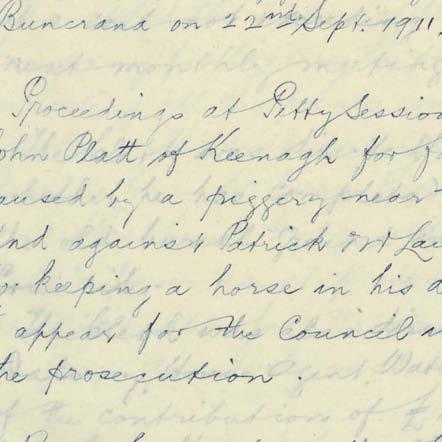 Buncrana on 22nd Sept. 1911.
Proceedings at Petty Session
John Platt of Keenagh for f
aused by a piggery near
and against Patrick McLau
for keeping a horse in his d
appear for the Council
the prosecution.